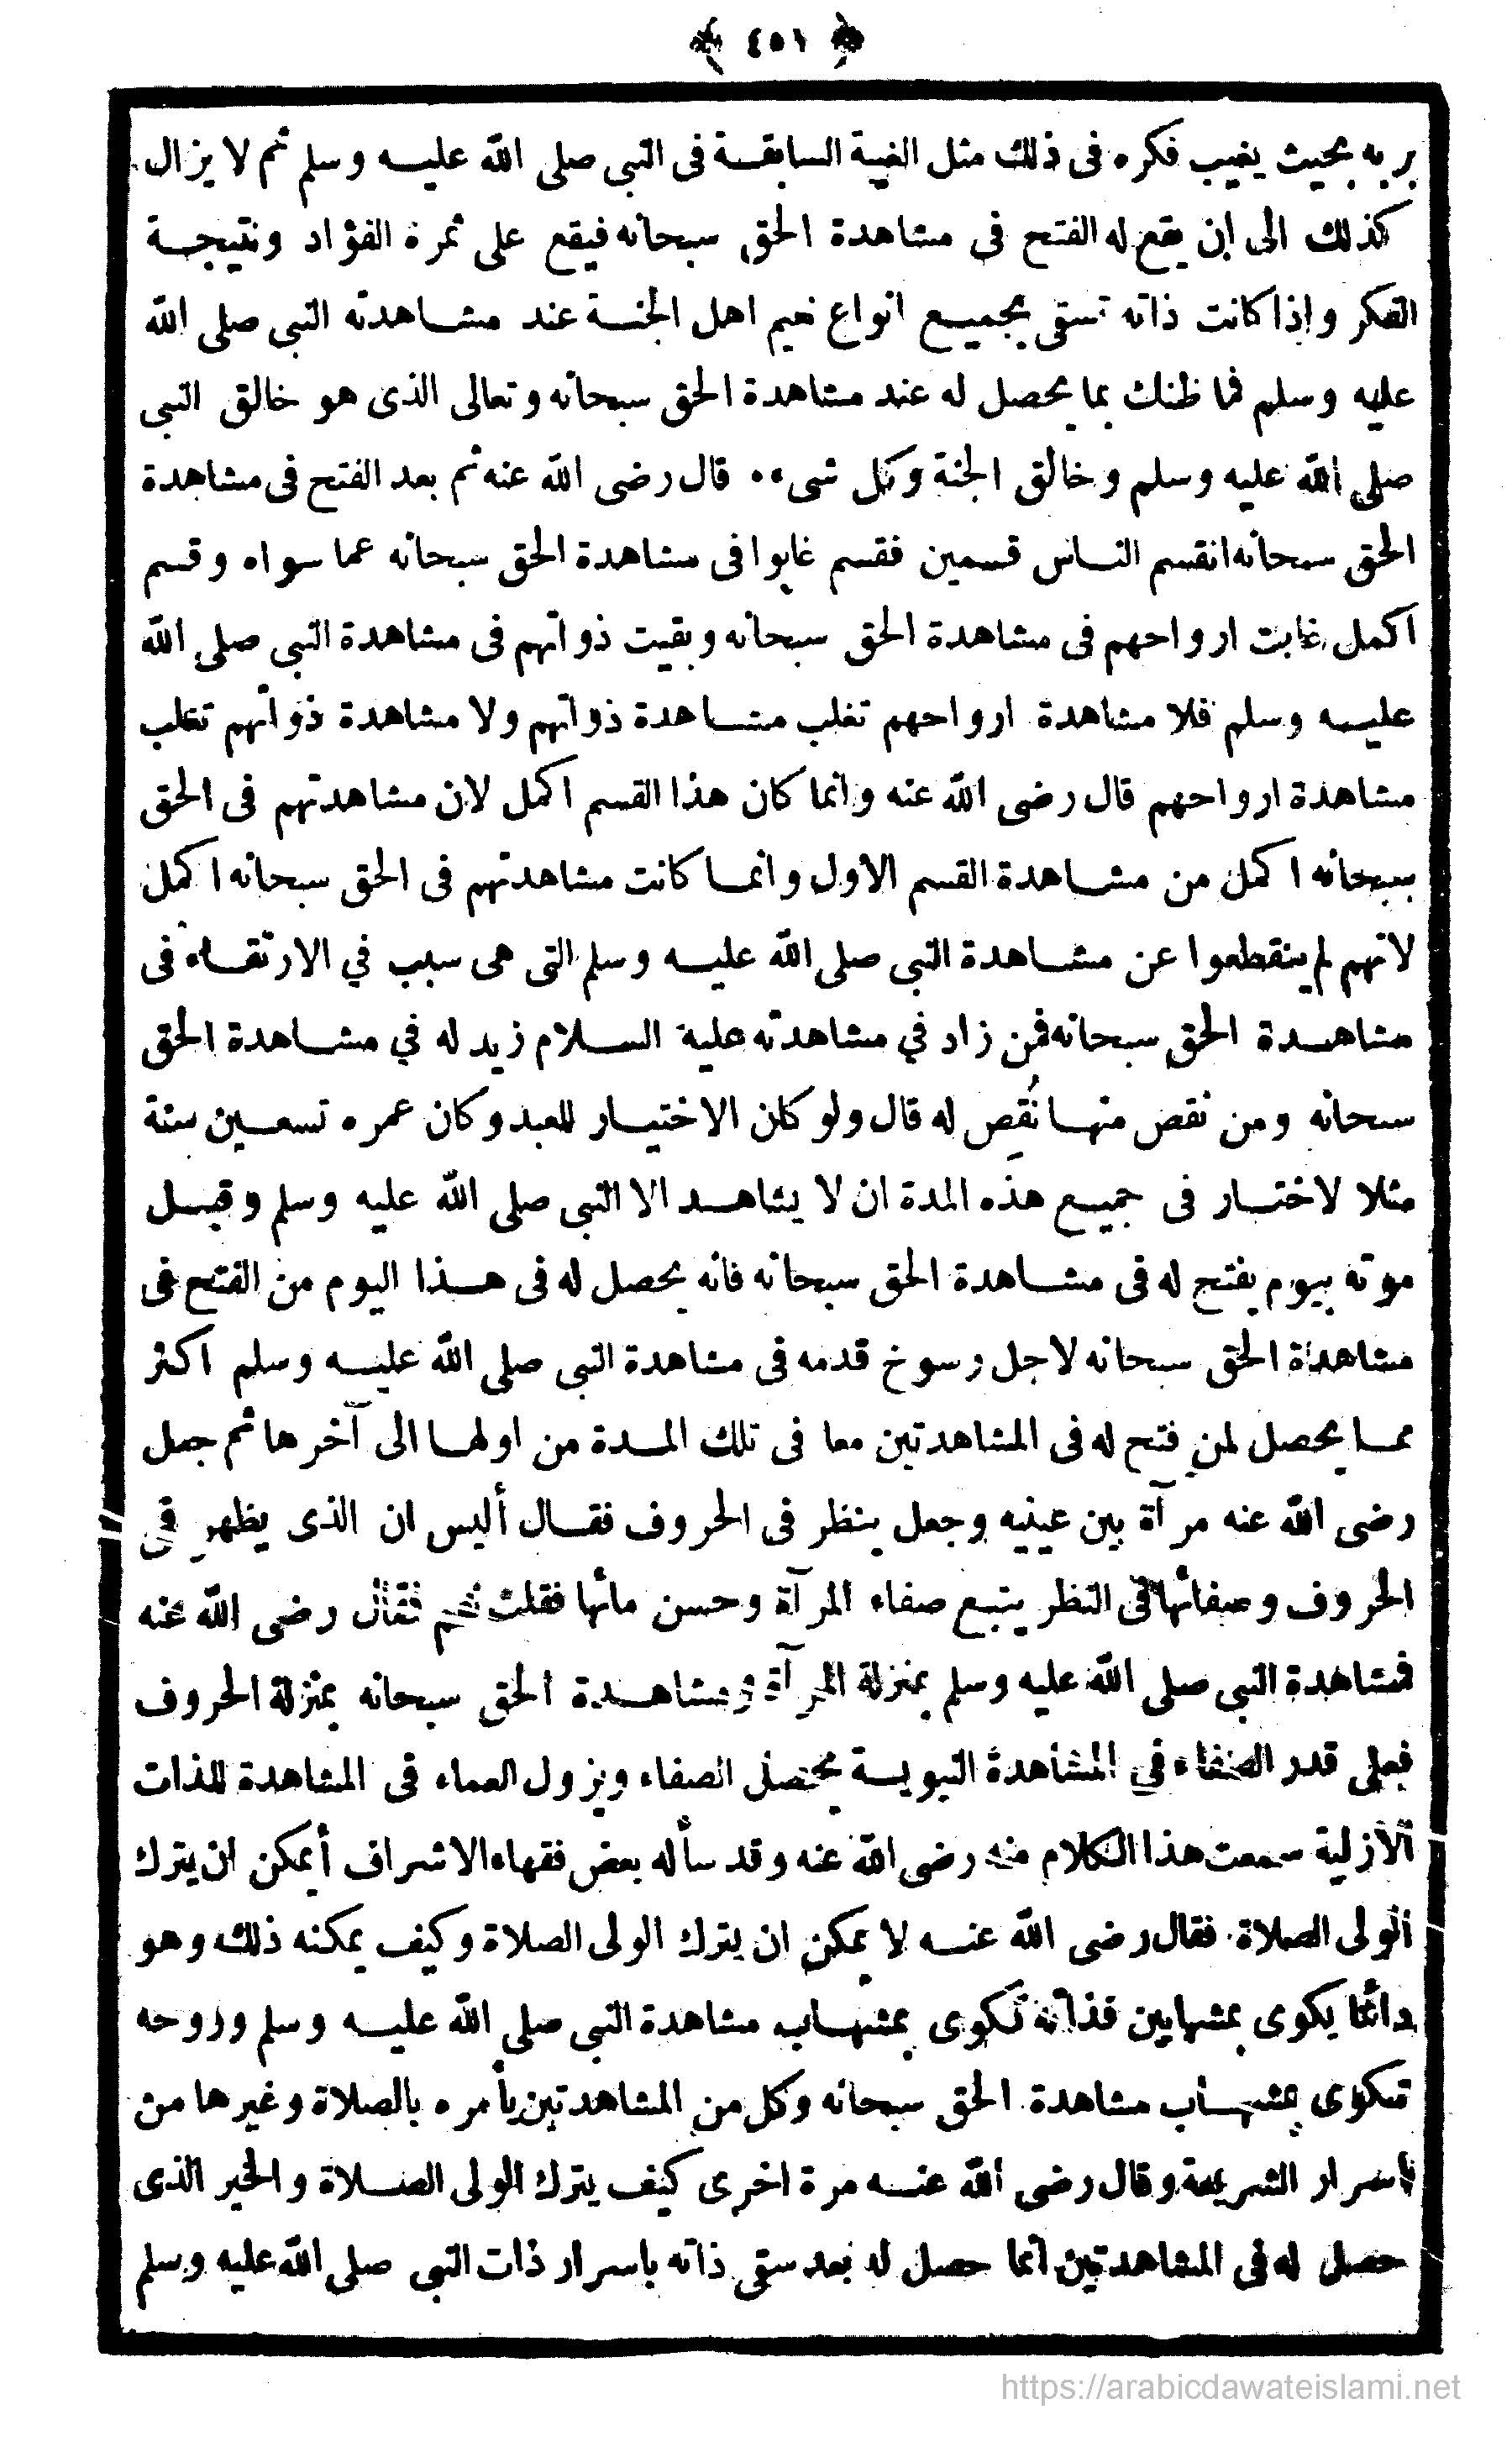 ٤٥١
بربه بحيث يغيب فكره فى ذلك مثل الغيبة السابقة فى النبى صلى الله عليه وسلم ثم لا يزال
كذلك الى ان يقع له الفتح فى مشاهدة الحق سبحانه فيقع على ثمرة الفؤاد ونتيجة
الفكر واذا كانت ذاته تسقى بجميع انواع نعيم اهل الجنة عند مشاهدته النبى صلى الله
عليه وسلم فما ظنك بما يحصل له عند مشاهدة الحق سبحانه وتعالى الذى هو خالق النبى
صلى الله عليه وسلم وخالق الجنة وكل شىء ۰ قال رضى الله عنه ثم بعد الفتح فى مشاهدة
الحق سبحانه انقسم الناس قسمين فقسم غابوا فى مشاهدة الحق سبحانه عما سواه وقسم
اكمل غابت ارواحهم فى مشاهدة الحق سبحانه وبقيت ذواتهم فى مشاهدة النبى صلى الله
عليه وسلم فلا مشاهدة ارواحهم تغلب مشاهدة ذواتهم ولا مشاهدة ذواتهم تغلب
مشاهدة ارواحهم قال رضى الله عنه وانما كان هذا القسم اكمل لان مشاهدتهم فى الحق
سبحانه اكمل من مشاهدة القسم الاول وانما كانت مشاهدتهم فى الحق سبحانه اكمل
لانهم لم ينقطعوا عن مشاهدة النبى صلى الله عليه وسلم التى هى سبب في الارتقاء فى
مشاهدة الحق سبحانه فمن زاد في مشاهدته علية السلام زيد له في مشاهدة الحق
سبحانه ومن نقص منها نُقِص له قال ولو كان الاختيار للعبد وكان عمره تسعين سنة
مثلا لاختار فى جميع هذه المدة ان لا يشاهد الا النبى صلى الله عليه وسلم وقبل
موته بيوم يفتح له فى مشاهدة الحق سبحانه فانه يحصل له فى هذا اليوم من الفتح فى
مشاهدة الحق سبحانه لاجل رسوخ قدمه فى مشاهدة النبى صلى الله عليه وسلم اكثر
مما يحصل لمن فتح له فى المشاهدتين معا فى تلك المدة من اولها الى آخرها ثم جعل
رضى الله عنه مرآة بين عينيه وجعل ينظر فى الحروف فقال أليس ان الذى يظهر فى
الحروف وصفائها فى النظر يتبع صفاء المرآة وحسن مائها فقلت نعم فقال رضى الله عنه
فمشاهدة النبى صلى الله عليه وسلم بمنزلة المرآة ومشاهدة الحق سبحانه بمنزلة الحروف
فعلى قدر الصفاء فى المشاهدة النبوية يحصل الصفاء ويزول العماء فى المشاهدة للذات
الأزلية سمعت هذا الكلام منه رضى الله عنه وقد سأله بعض فقهاء الاشراف أيمكن ان يترك
الولى الصلاة فقال رضى الله عنه لا يمكن ان يترك الولى الصلاة وكيف يمكنه ذلك وهو
دائما يكوى بمشهابين فذاته تكوى بمشهاب مشاهدة النبى صلى الله عليه وسلم وروحه
تكوى بمشهاب مشاهدة الحق سبحانه وكل من المشاهدتين يأمره بالصلاة وغيرها من
اسرار الشريعة وقال رضى الله عنه مرة اخرى كيف يترك الولى الصلاة والخير الذى
حصل له فى المشاهدتين انما حصل له بعد سقى ذاته باسرار ذات النبى صلى الله عليه وسلم
https://arabicdawateislami.net